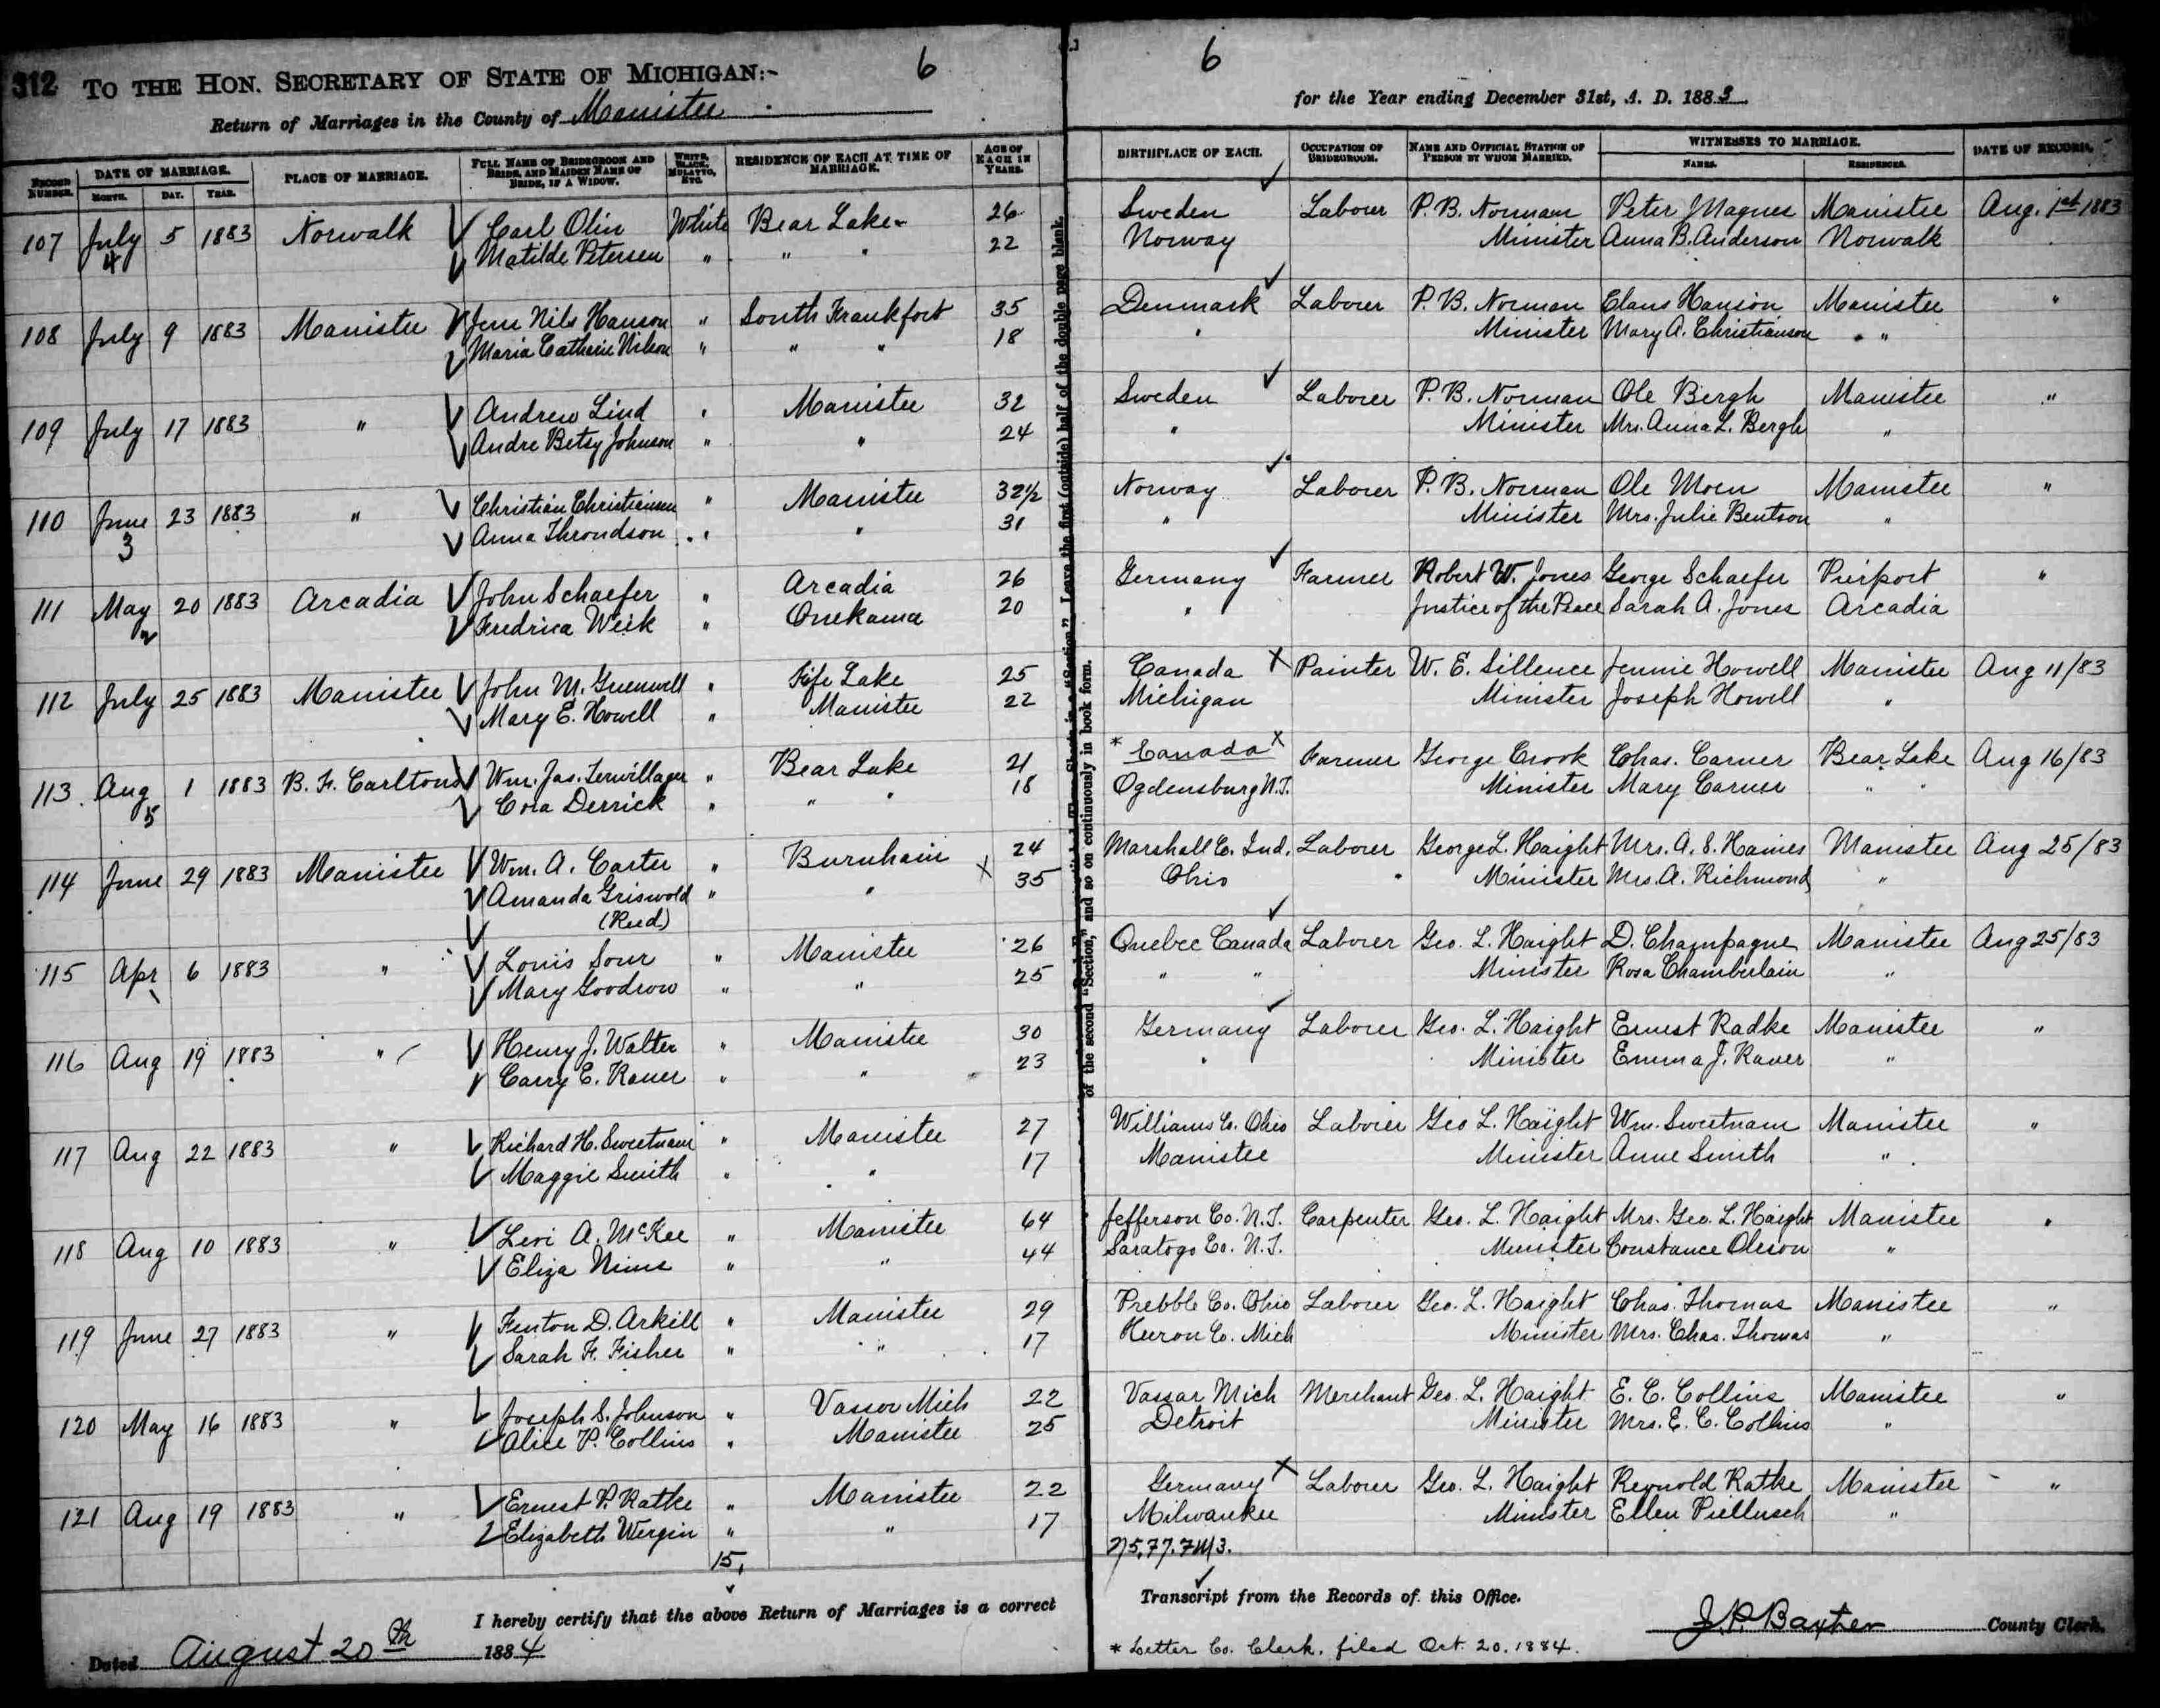 312 TO THE HON. SECRETARY OF STATE OF MICHIGAN:- 6
Return of Marriages in the County of Manistee
RECORD NUMBER. DATE OF MARRIAGE. MONTH. DAY. YEAR. PLACE OF MARRIAGE. FULL NAME OF BRIDEGROOM AND BRIDE, AND MAIDEN NAME OF BRIDE, IF A WIDOW. WHITE, BLACK, MULATTO, ETC. RESIDENCE OF EACH AT TIME OF MARRIAGE. AGE OF EACH IN YEARS.
107 July 5 1883 Norwalk Carl Olin White Bear Lake 26
4 Matilde Petersen " " " 22
108 July 9 1883 Manistee Jens Nils Hanson " South Frankfort 35
Maria Cathrin Nilson " " " 18
109 July 17 1883 " Andrew Lind " Manistee 32
Andre Betsy Johnson " " 24
110 June 23 1883 " Christian Christiansen " Manistee 32½
3 Anna Throndson " " 31
111 May 20 1883 Arcadia John Schaefer " Arcadia 26
2 Fredrica Weik " Onekama 20
112 July 25 1883 Manistee John M. Guenwell " Fife Lake 25
Mary E. Howell " Manistee 22
113 Aug 1 1883 B. F. Carltons Wm. Jas. Terwillager " Bear Lake 21
5 Cora Derrick " " " 18
114 June 29 1883 Manistee Wm. A. Carter " Burnham 24
Amanda Griswold " " X 35
(Reed)
115 Apr 6 1883 " Louis Sour " Manistee 26
Mary Goodrow " " 25
116 Aug 19 1883 " Henry J. Walter " Manistee 30
Carry E. Rauer " " 23
117 Aug 22 1883 " Richard H. Sweetnam " Manistee 27
Maggie Smith " " 17
118 Aug 10 1883 " Levi A. McKee " Manistee 64
Eliza Nims " " 44
119 June 27 1883 " Fenton D. Arkill " Manistee 29
Sarah F. Fisher " " 17
120 May 16 1883 " Joseph S. Johnson " Vassar Mich 22
Alice P. Collins " Manistee 25
121 Aug 19 1883 " Ernest P. Ratke " Manistee 22
Elizabeth Wergin " " 17
15,
I hereby certify that the above Return of Marriages is a correct
Dated August 20th 1884
Leave the first (outside) half of the double page blank.
of the second "Section," and so on continuously in book form.
6
for the Year ending December 31st, A. D. 1883.
BIRTHPLACE OF EACH. OCCUPATION OF BRIDEGROOM. NAME AND OFFICIAL STATION OF PERSON BY WHOM MARRIED. WITNESSES TO MARRIAGE. NAMES. RESIDENCES. DATE OF RECORD.
Sweden Laborer P. B. Norman Peter J Magnes Manistee Aug. 1st 1883
Norway Minister Anna B. Anderson Norwalk
Denmark Laborer P. B. Norman Claus Hanson Manistee "
" Minister Mary A. Christianson " "
Sweden Laborer P. B. Norman Ole Bergh Manistee "
" Minister Mrs. Anna L. Bergh "
Norway Laborer P. B. Norman Ole Moen Manistee "
" Minister Mrs. Julie Bentson "
Germany Farmer Robert W. Jones George Schaefer Pierport "
" Justice of the Peace Sarah A. Jones Arcadia
Canada X Painter W. E. Sillence Jennie Howell Manistee Aug 11/83
Michigan Minister Joseph Howell "
* Canada X Farmer George Crook Chas. Carner Bear Lake Aug 16/83
Ogdensburg N.Y. Minister Mary Carner " "
Marshall Co. Ind. Laborer George L. Haight Mrs. A. S. Haines Manistee Aug 25/83
Ohio " Minister Mrs. A. Richmond "
Quebec Canada Laborer Geo. L. Haight D. Champagne Manistee Aug 25/83
" " Minister Rosa Chamberlain "
Germany Laborer Geo. L. Haight Ernest Radke Manistee "
" Minister Emma J. Rauer "
Williams Co. Ohio Laborer Geo L. Haight Wm. Sweetnam Manistee "
Manistee Minister Anne Smith "
Jefferson Co. N.Y. Carpenter Geo. L. Haight Mrs. Geo. L. Haight Manistee "
Saratogo Co. N.Y. Minister Constance Oleson "
Prebble Co. Ohio Laborer Geo. L. Haight Chas. Thomas Manistee "
Huron Co. Mich Minister Mrs. Chas. Thomas "
Vassar Mich Merchant Geo. L. Haight E. C. Collins Manistee "
Detroit Minister Mrs. E. C. Collins "
Germany X Laborer Geo. L. Haight Reynold Ratke Manistee "
Milwaukee Minister Ellen Piellusch "
Transcript from the Records of this Office.
J. P. Baxter County Clerk.
* Letter Co. Clerk, filed Oct. 20. 1884.